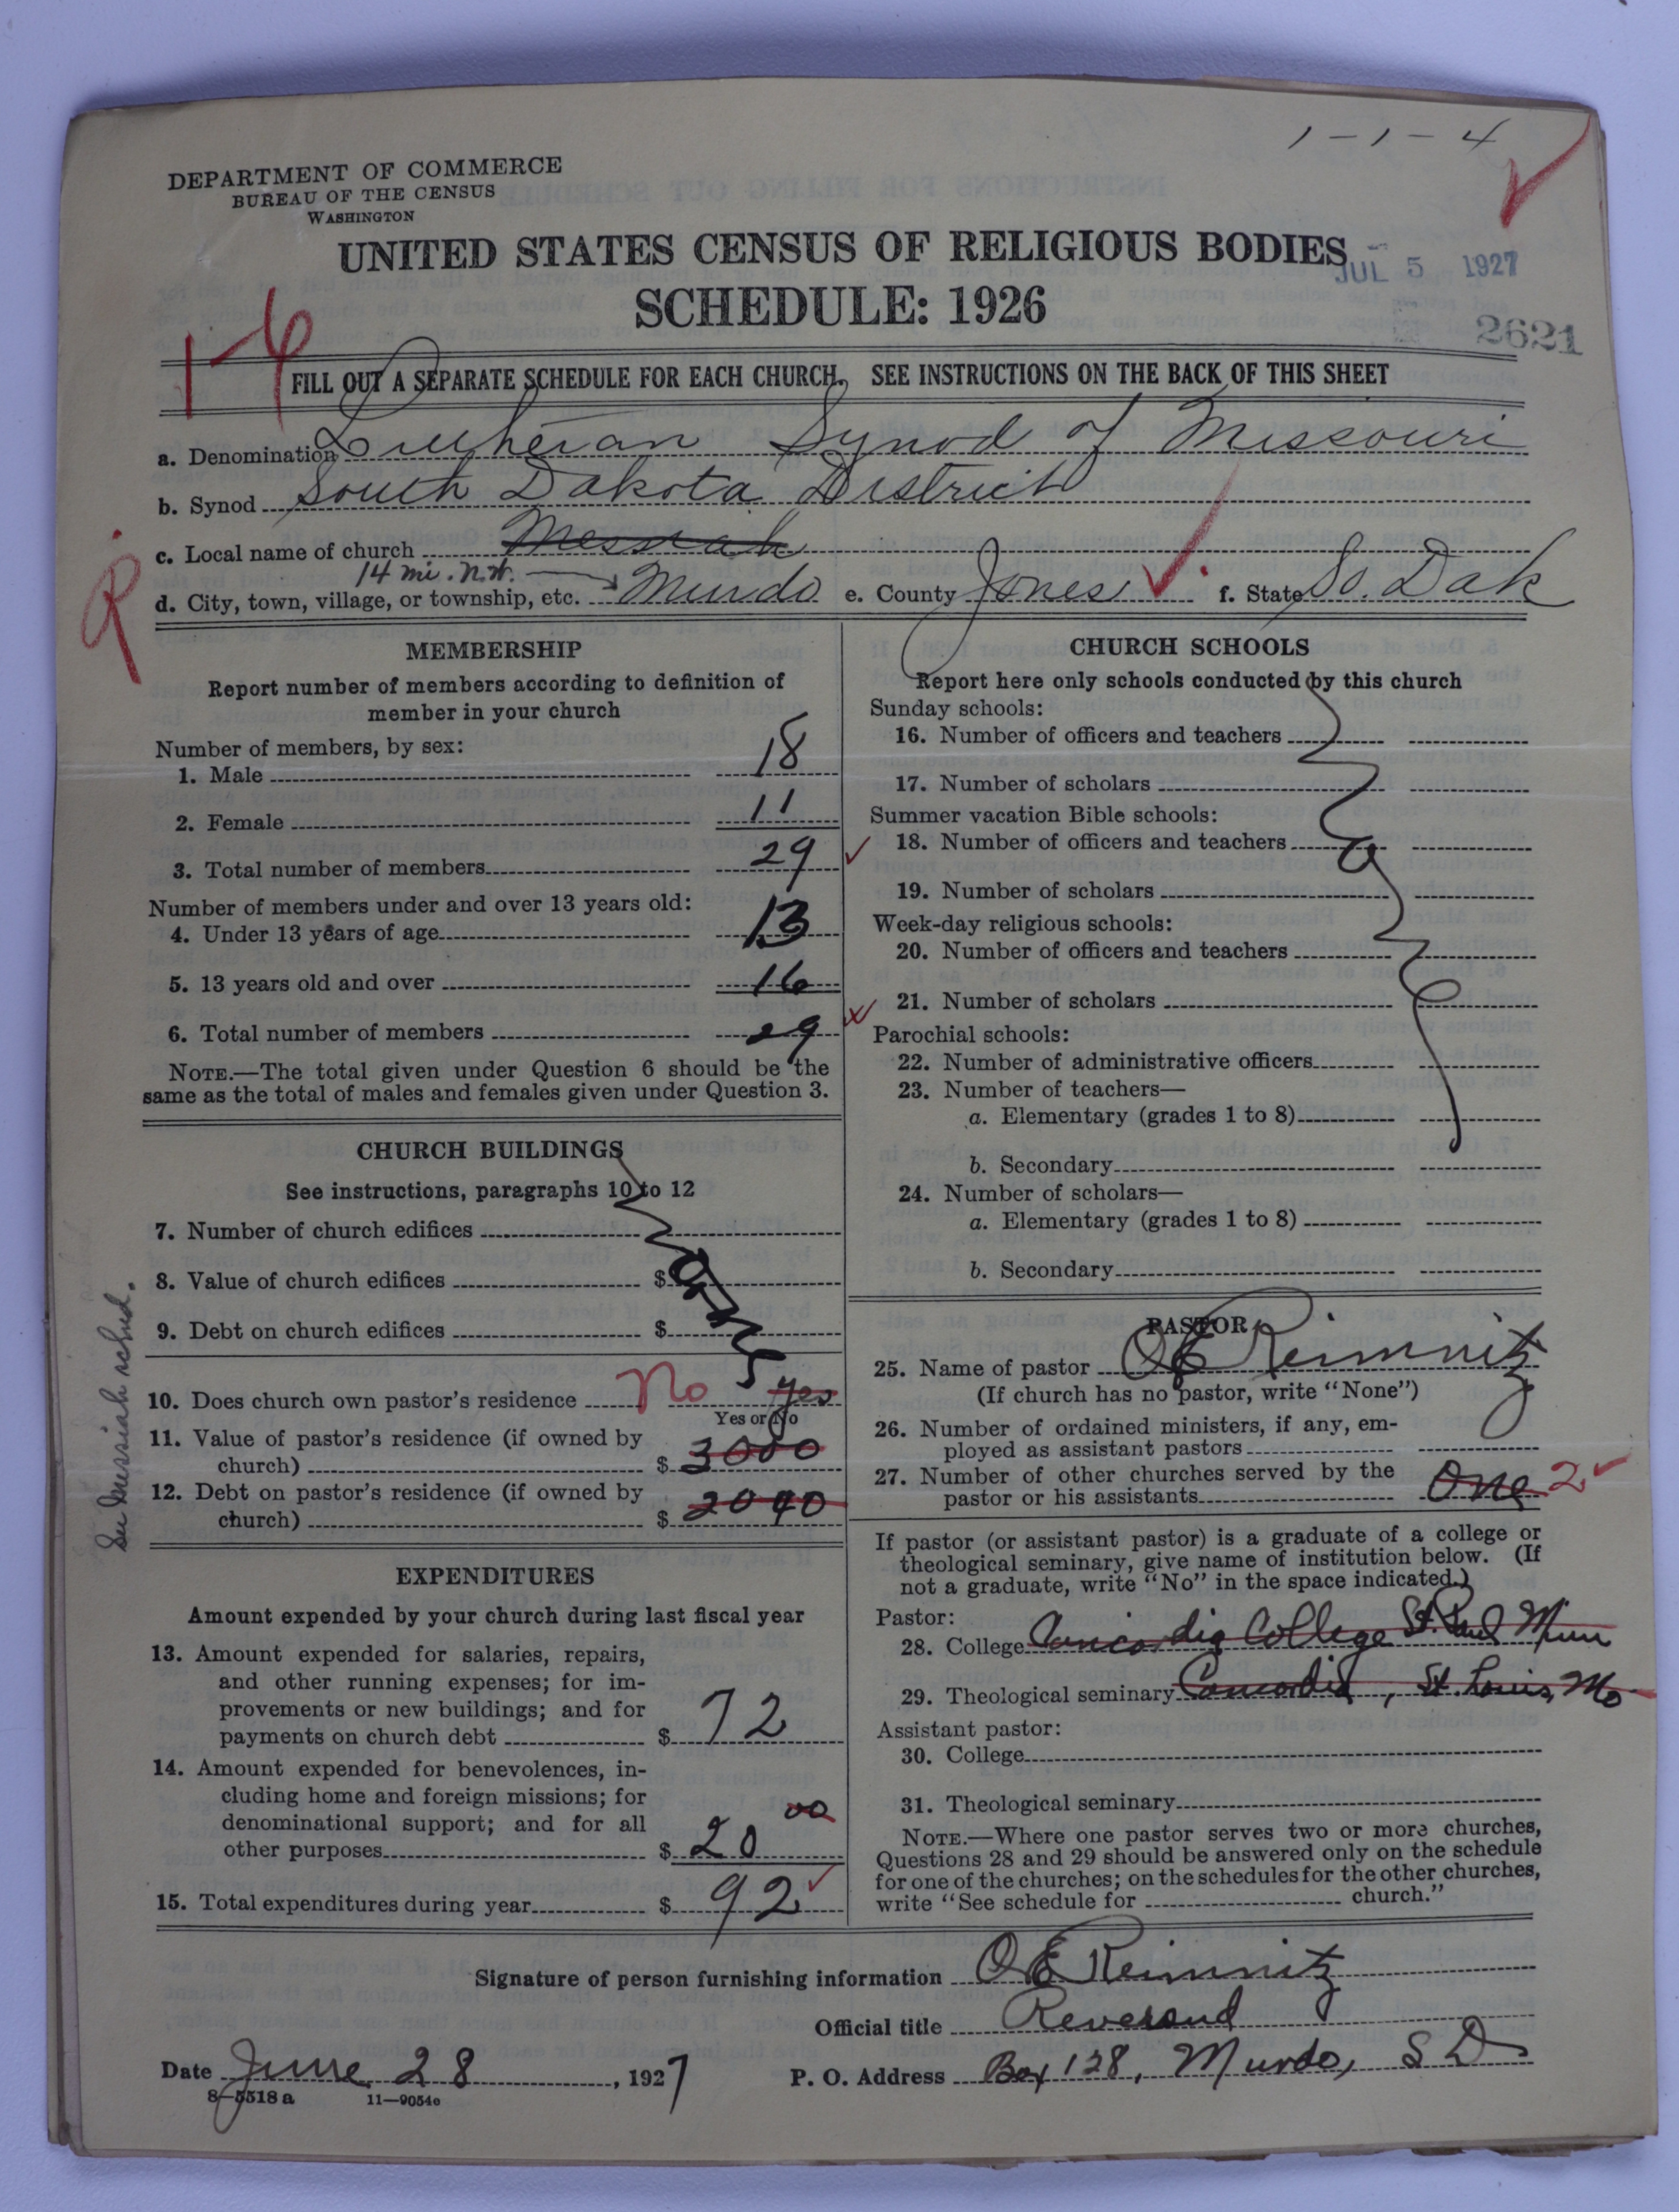 1-1-4
DEPARTMENT OF COMMERCE
BUREAU OF THE CENSUS
WASHINGTON
UNITED STATES CENSUS OF RELIGIOUS BODIES
JUL 5 1927
SCHEDULE: 1926
2621
FILL OUT A SEPARATE SCHEDULE FOR EACH CHURCH. SEE INSTRUCTIONS ON THE BACK OF THIS SHEET
a. Denomination Lutheran Synod of Missouri
b. Synod South Dakota District
c. Local name of church Messiah
14 mi. N.W.
d. City, town, village, or township, etc. Murdo e. County Jones f. State So. Dak
R
MEMBERSHIP
Report number of members according to definition of
member in your church
Number of members, by sex:
1. Male 18
2. Female 11
3. Total number of members 29
Number of members under and over 13 years old:
4. Under 13 years of age 13
5. 13 years old and over 16
6. Total number of members 29
NOTE.—The total given under Question 6 should be the
same as the total of males and females given under Question 3.
CHURCH BUILDINGS
See instructions, paragraphs 10 to 12
7. Number of church edifices
8. Value of church edifices $
9. Debt on church edifices $
10. Does church own pastor's residence No yes
Yes or No
11. Value of pastor's residence (if owned by
church) $ 3000
12. Debt on pastor's residence (if owned by
church) $ 2040
Messiah sched.
EXPENDITURES
Amount expended by your church during last fiscal year
13. Amount expended for salaries, repairs,
and other running expenses; for im-
provements or new buildings; and for
payments on church debt $ 72
14. Amount expended for benevolences, in-
cluding home and foreign missions; for
denominational support; and for all
other purposes $ 20 00
15. Total expenditures during year $ 92
CHURCH SCHOOLS
Report here only schools conducted by this church
Sunday schools:
16. Number of officers and teachers
17. Number of scholars
Summer vacation Bible schools:
18. Number of officers and teachers
19. Number of scholars
Week-day religious schools:
20. Number of officers and teachers
21. Number of scholars
Parochial schools:
22. Number of administrative officers
23. Number of teachers—
a. Elementary (grades 1 to 8)
b. Secondary
24. Number of scholars—
a. Elementary (grades 1 to 8)
b. Secondary
PASTOR
25. Name of pastor O E Reimnitz
(If church has no pastor, write "None")
26. Number of ordained ministers, if any, em-
ployed as assistant pastors
27. Number of other churches served by the
pastor or his assistants One 2
If pastor (or assistant pastor) is a graduate of a college or
theological seminary, give name of institution below. (If
not a graduate, write "No" in the space indicated.)
Pastor:
28. College Concordia College St. Paul Minn
29. Theological seminary Concordia, St Louis, Mo
Assistant pastor:
30. College
31. Theological seminary
NOTE.—Where one pastor serves two or more churches,
Questions 28 and 29 should be answered only on the schedule
for one of the churches; on the schedules for the other churches,
write "See schedule for church."
Signature of person furnishing information O E Reimnitz
Official title Reverend
Date June 28, 1927 P. O. Address Box 128, Murdo, S D
8-5518 a 11-9054c